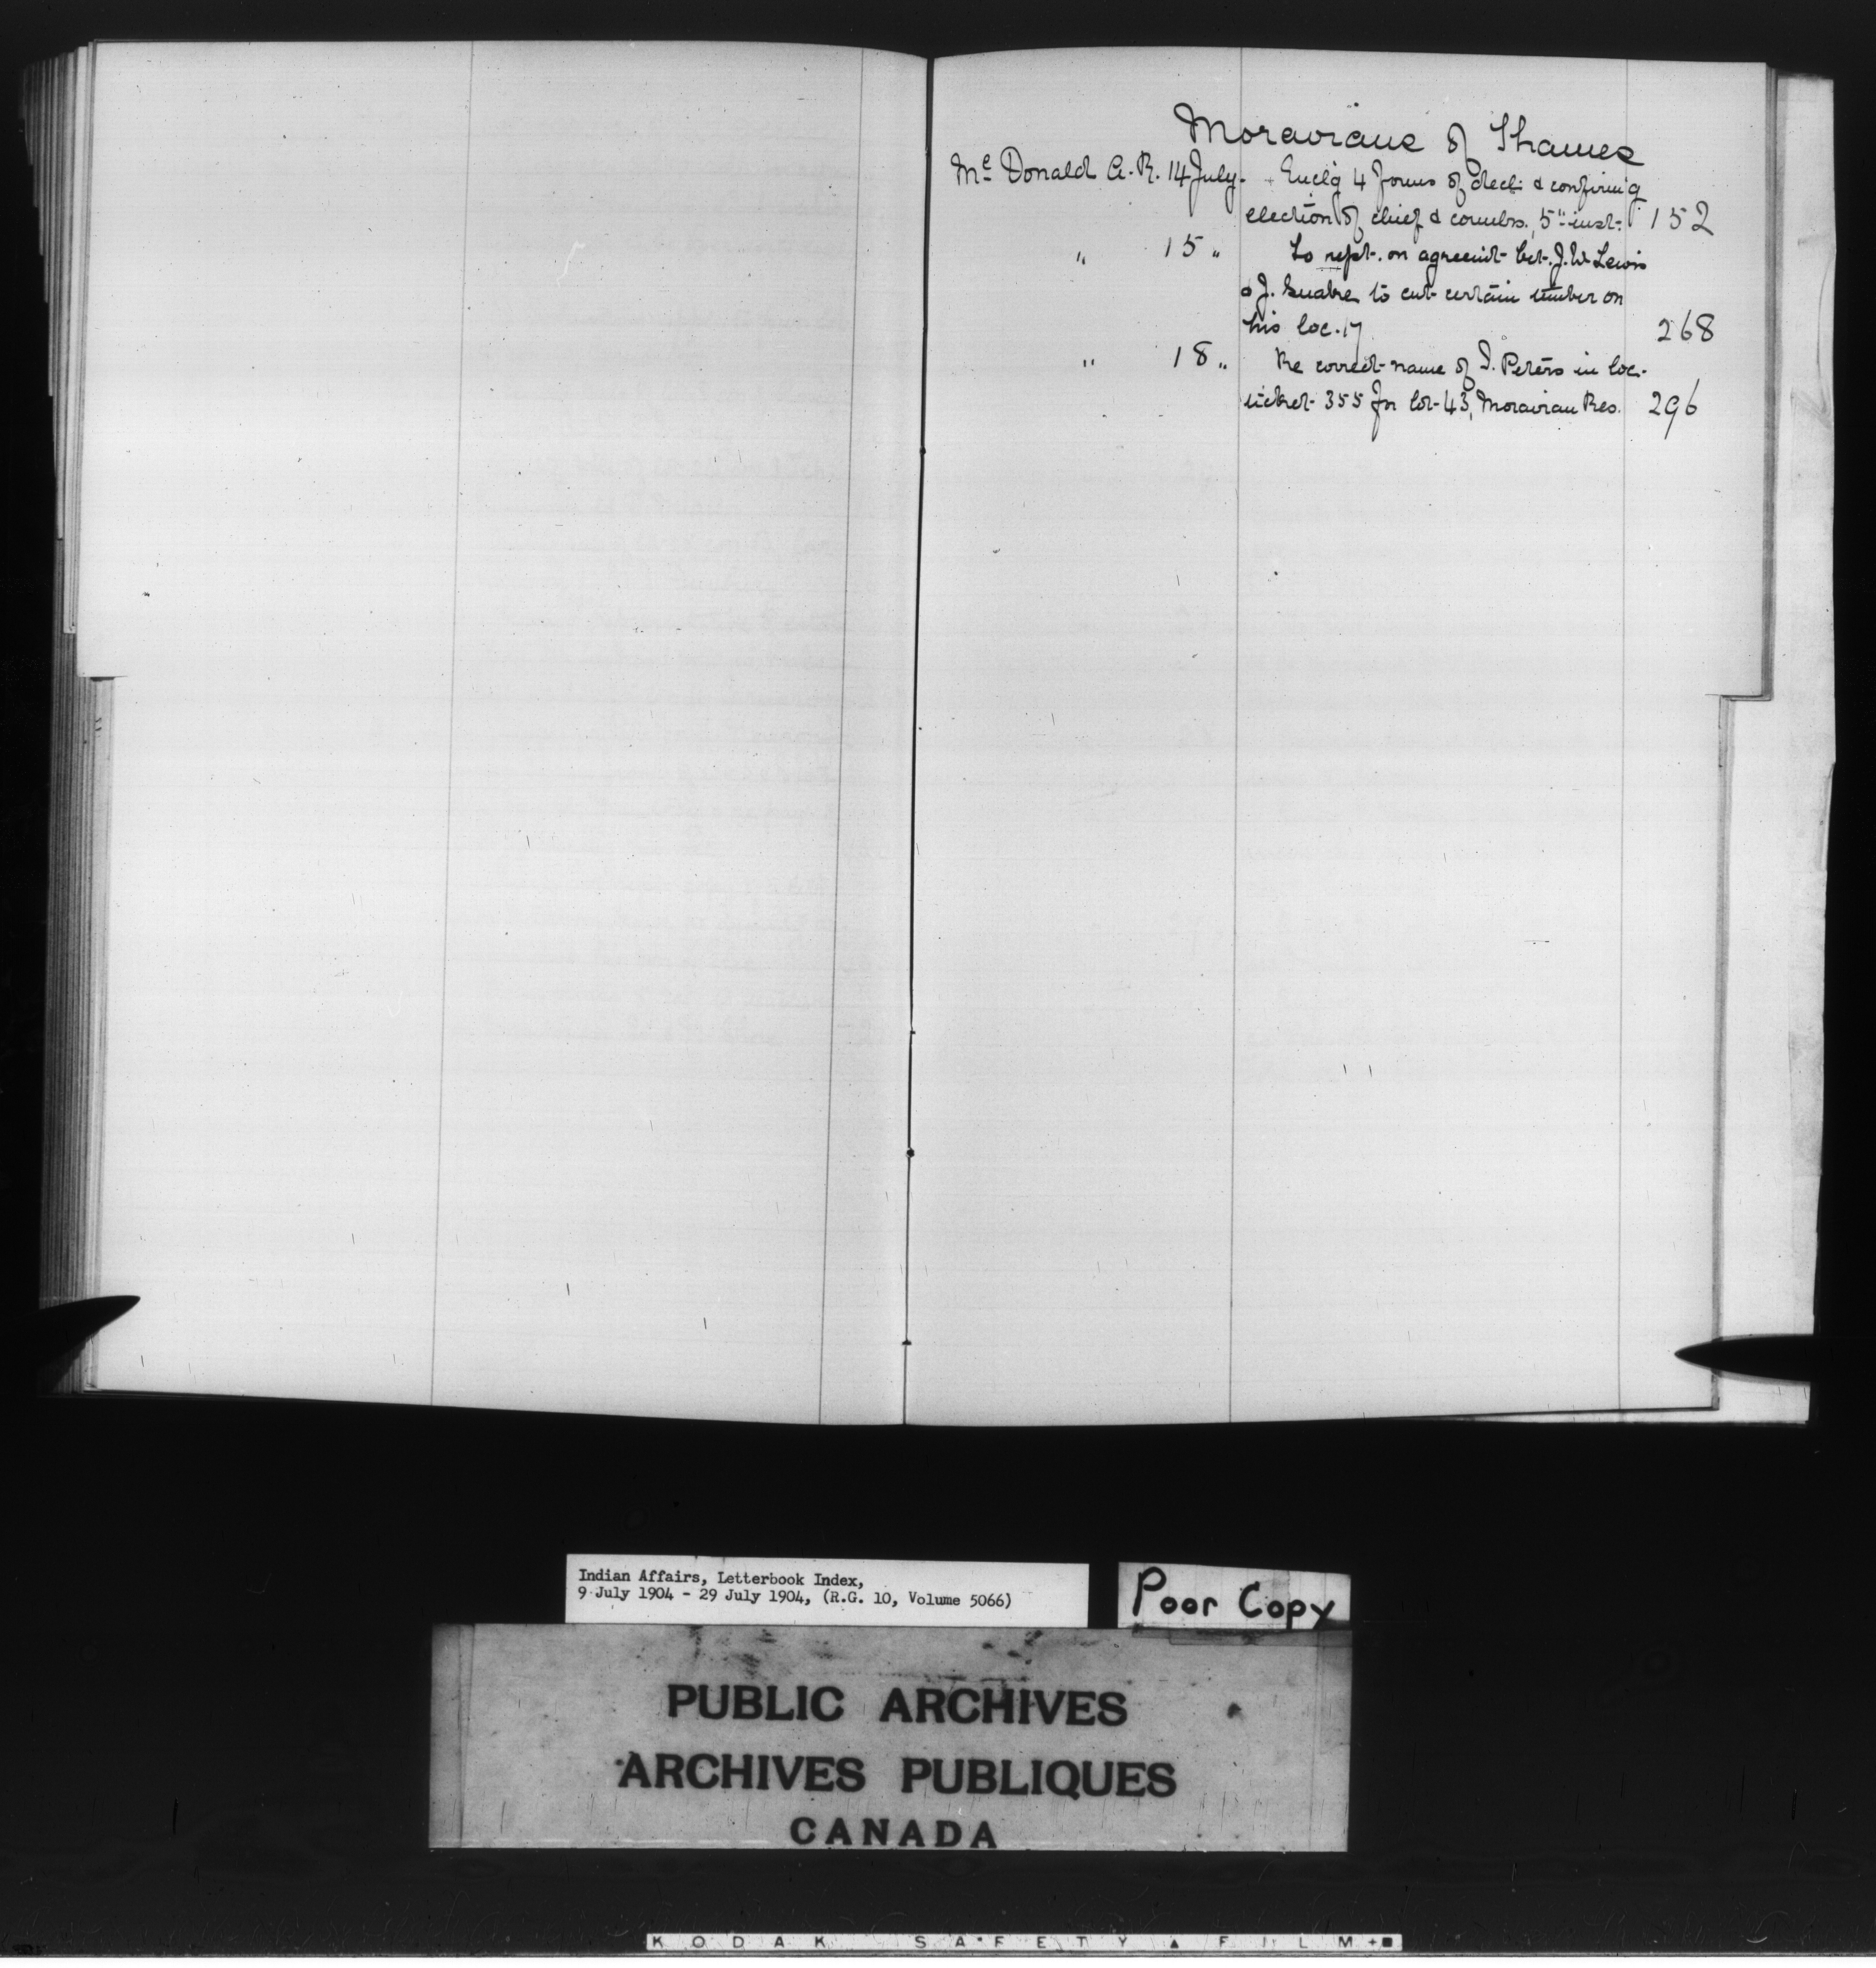 Moravians of Thames
Mc Donald A. R. 14 July. Enclg 4 forms of decl: & confirmg
election of chief & counlrs., 5" inst. 152
" 15 " To rept. on agreemt bet. J. W. Lewis
& J. to cut certain timber on
his loc. 17 268
" 18 " Re correct name of I. Peters in loc.
ticket 355 for lot 43, Moravian Res. 296
Indian Affairs, Letterbook Index,
9 July 1904 - 29 July 1904, (R.G. 10, Volume 5066)
Poor Copy
PUBLIC ARCHIVES
ARCHIVES PUBLIQUES
CANADA
KODAK SAFETY FILM